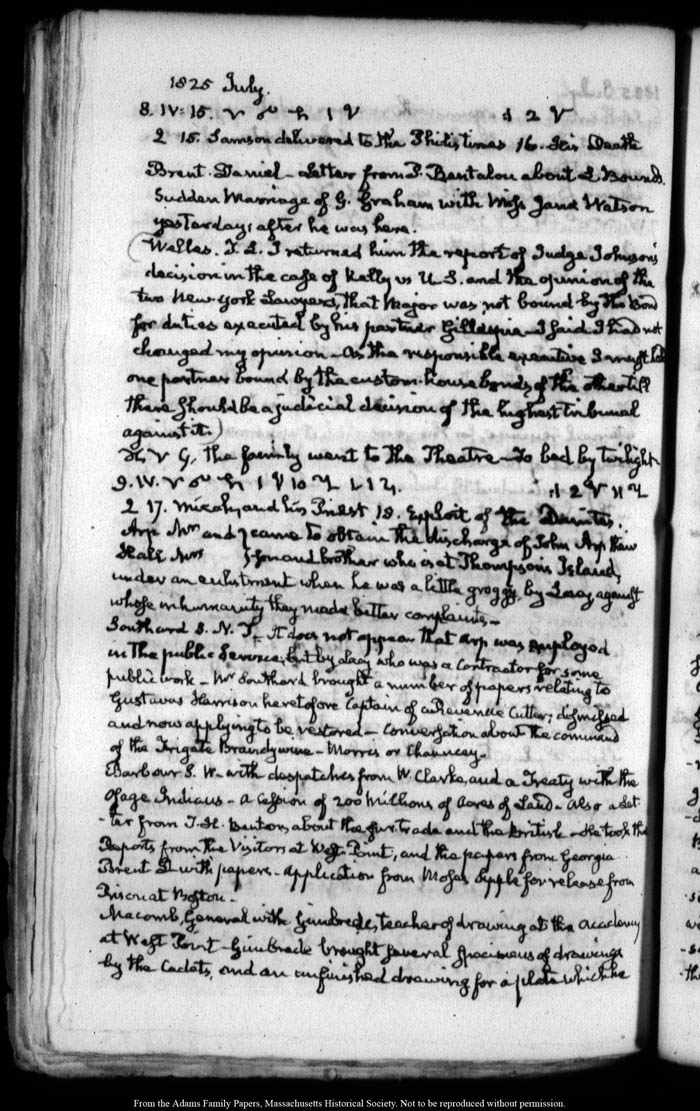 1825 July.
8. IV: 15. V
2 15. Samson delivered to the Philistines 16. His Death
Brent. Daniel - Letter from P. Bentalou about L. Bounds.
Sudden Marriage of G. Graham with Miss Jane Watson
yesterday; after he was here.
(Welles. T. L. I returned him the report of Judge Johnson's
decision in the case of Kelly vs U.S. and the opinion of the
two New York Lawyers, that Major was not bound by the Bond
for duties executed by his partner Gillespie - I said I had not
changed my opinion - As the responsible executive I must hold
one partner bound by the custom-house bonds of the other till
there should be a judicial decision of the highest tribunal
against it.)
the family went to the Theatre - To bed by twilight
9. IV.
2 17. Micah, and his Priest 18. Exploit of the Danites.
Arp Mrs and came to obtain the discharge of John Arp their
Hall Mrs son and brother who is at Thompson's Island,
under an enlistment when he was a little groggy, by Leay, against
whose inhumanity they made bitter complaints -
Southard S. N. It does not appear that Arp was employed
in the public Service, but by Leay who was a Contractor for some
public work - Mr Southard brought a number of papers relating to
Gustavus Harrison heretofore Captain of a Revenue Cutter; dismissed
and now applying to be restored - Conversation about the command
of the Frigate Brandywine - Morris or Chauncey -
Barbour S. W. with despatches from W. Clarke, and a Treaty with the
Osage Indians - A Cession of 200 Millions of Acres of Land - Also a Let
-ter from T. H. Benton, about the fur trade and the British - He took the
Reports from the Visitors at West Point, and the papers from Georgia
Brent D. with papers - Application from Moses Sipple for release from
Prison at Boston -
Macomb, General with Gimbrede, teacher of drawing at the Academy
at West Point - Gimbrede brought several specimens of drawings
by the Cadets, and an unfinished drawing for a plate which he
From the Adams Family Papers, Massachusetts Historical Society. Not to be reproduced without permission.